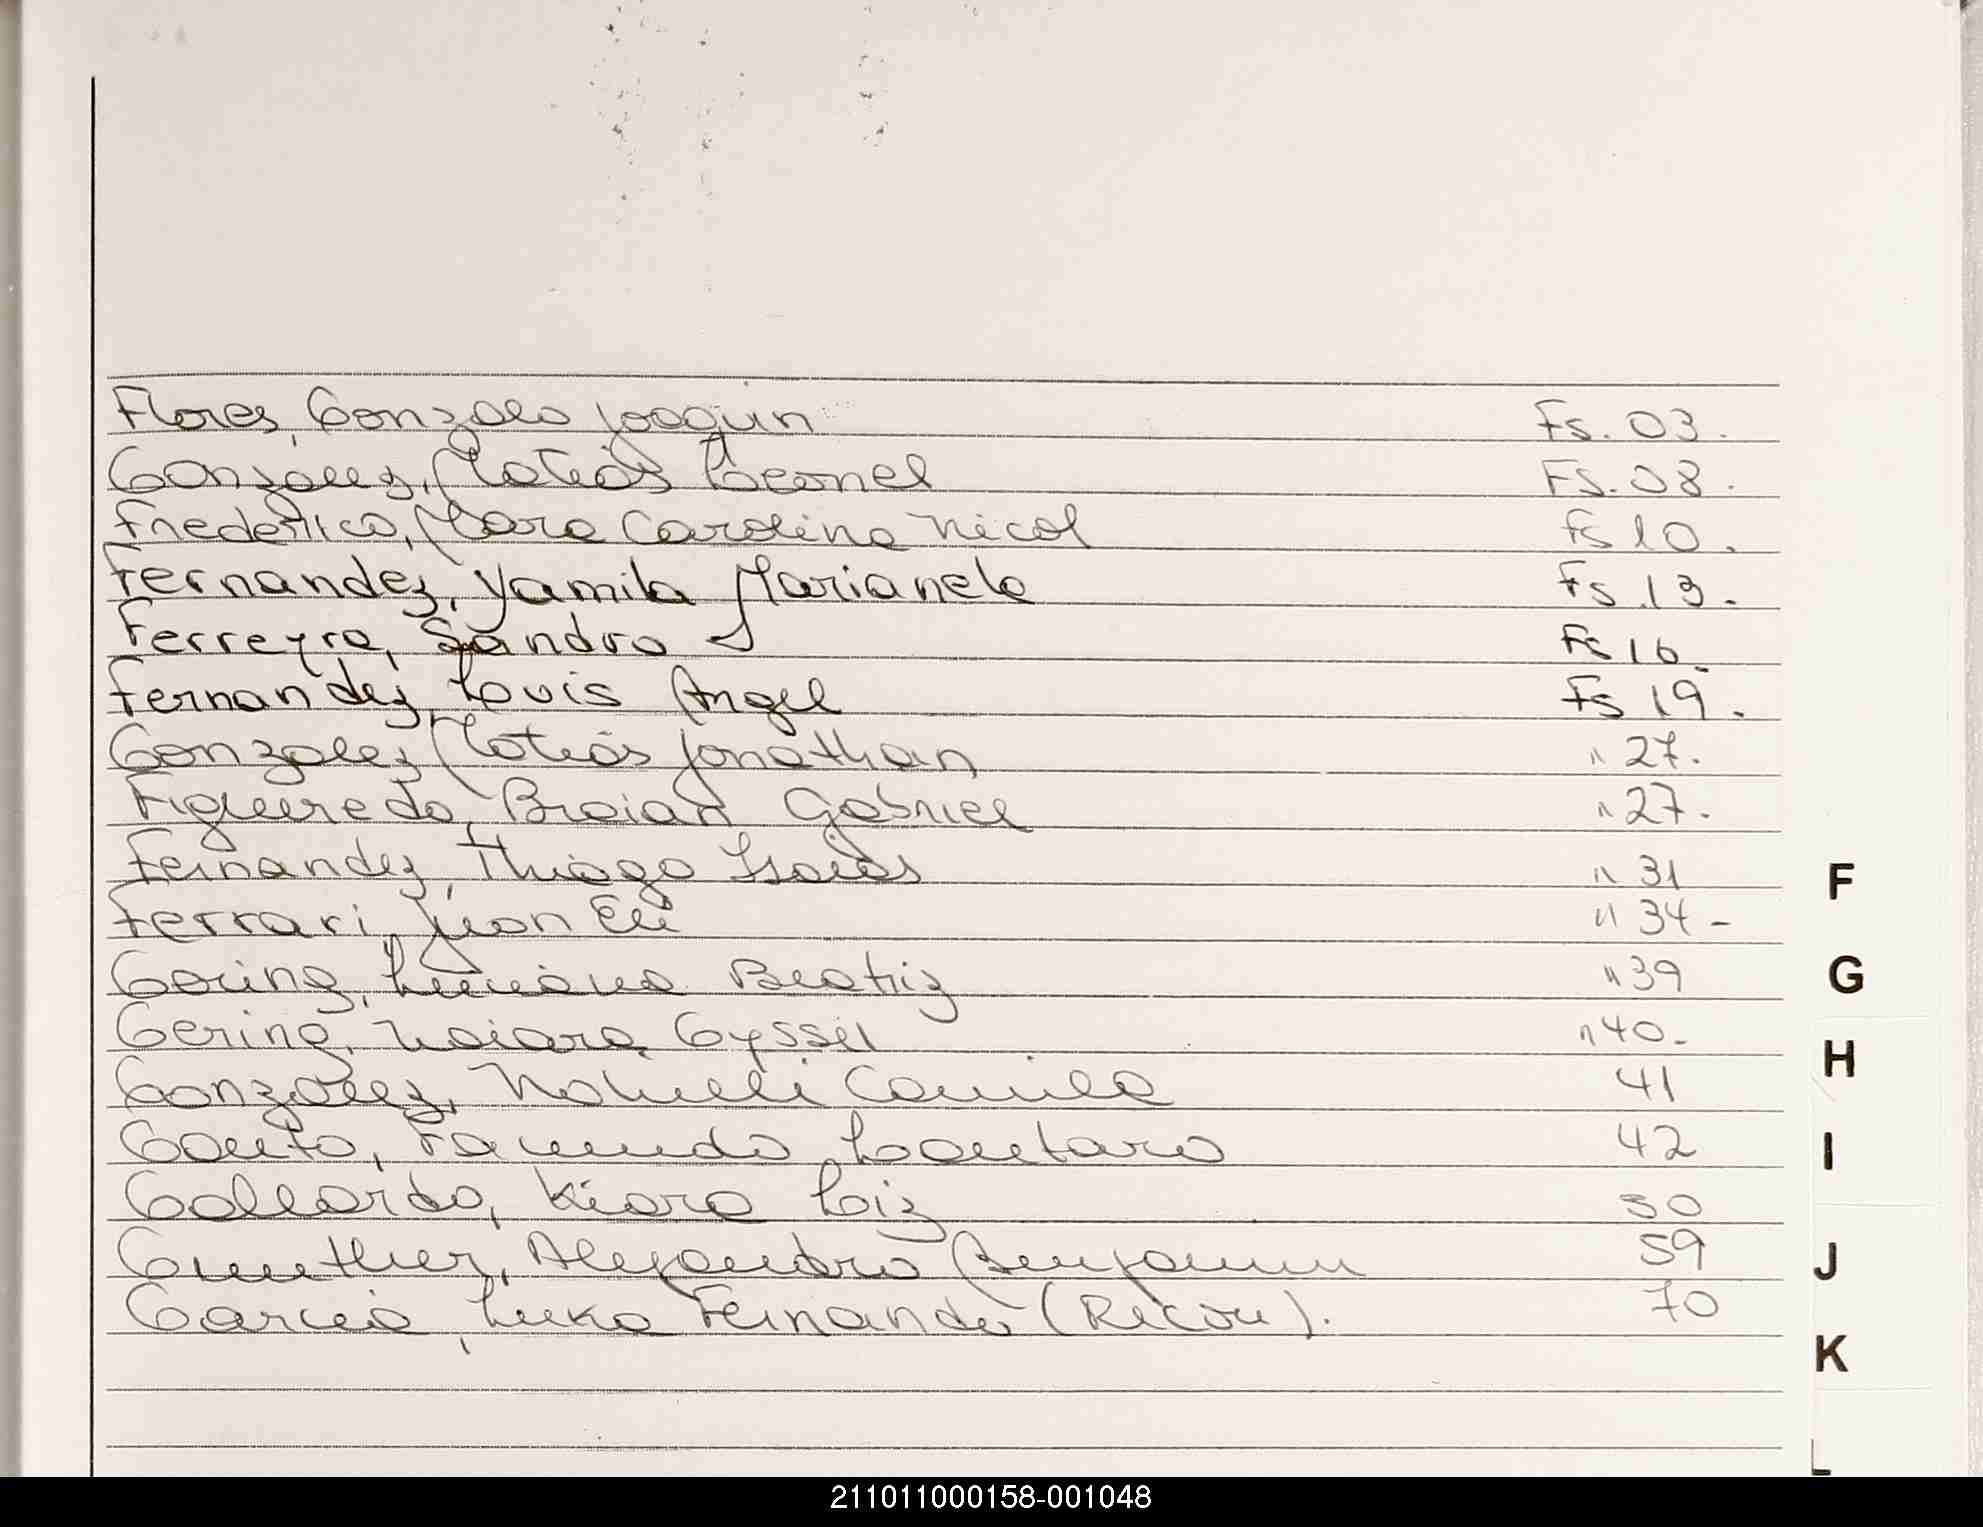 Flores, Gonzalo Joaquin Fs. 03.
González, Matías Leonel Fs. 08.
Frederico, Mara Carolina Nicol Fs 10.
Fernandez, Yamila Marianela Fs. 13.
Ferreyra, Sandro Fs 16.
Fernandez, Louis Angel Fs 19.
Gonzalez Matías Jonathan " 27.
Figueredo, Braian Gabriel " 27.
Fernandez, Thiago Isaías " 31
Ferrari, Juan Eli " 34 -
Gering, Luciana Beatriz " 39
Gering, Naiara Gyssel " 40.-
González, Nahueli Camila 41
Gauto, Facundo Lautaro 42
Gallardo, Kiara Luz 50
Gunther, Alejandro Benjamin 59
García, Luka Fernando (Recon). 70
F
G
H
I
J
K
L
211011000158-001048